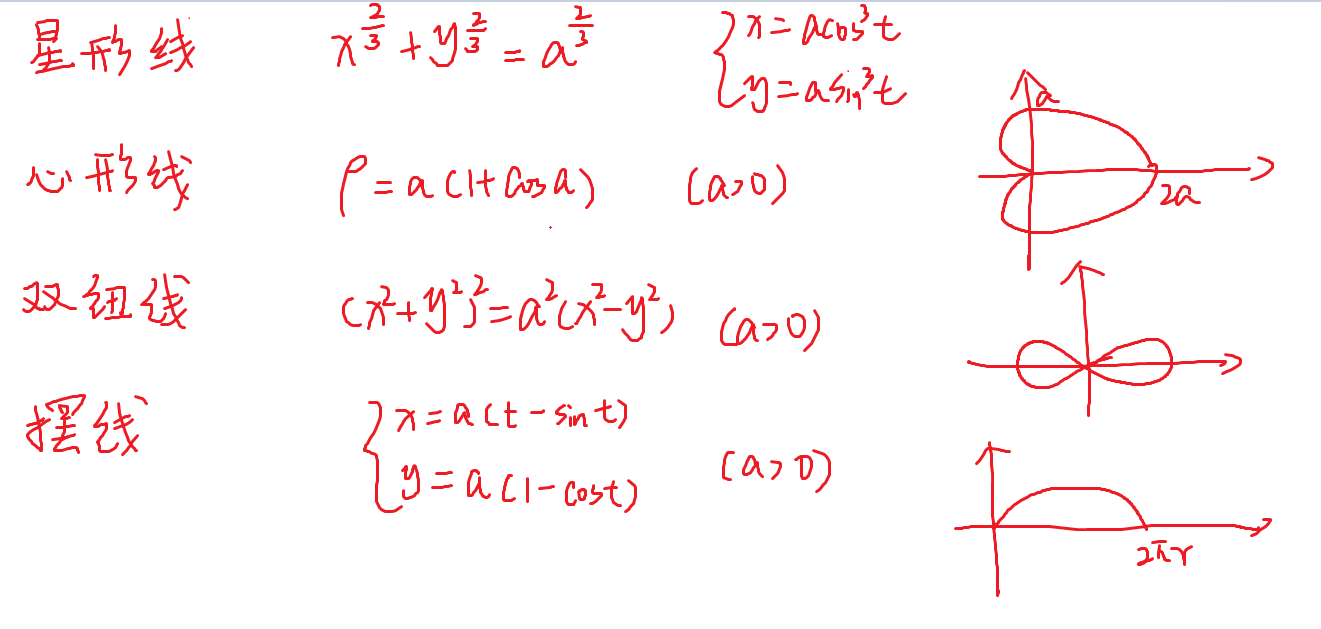 星形线 x^{2/3} + y^{2/3} = a^{2/3} { x = acos³t
y = asin³t
a
心形线 ρ = a(1+cosa) (a>0)
2a
双纽线 (x²+y²)² = a²(x²-y²) (a>0)
摆线 { x = a(t-sint)
y = a(1-cost) (a>0)
2πr